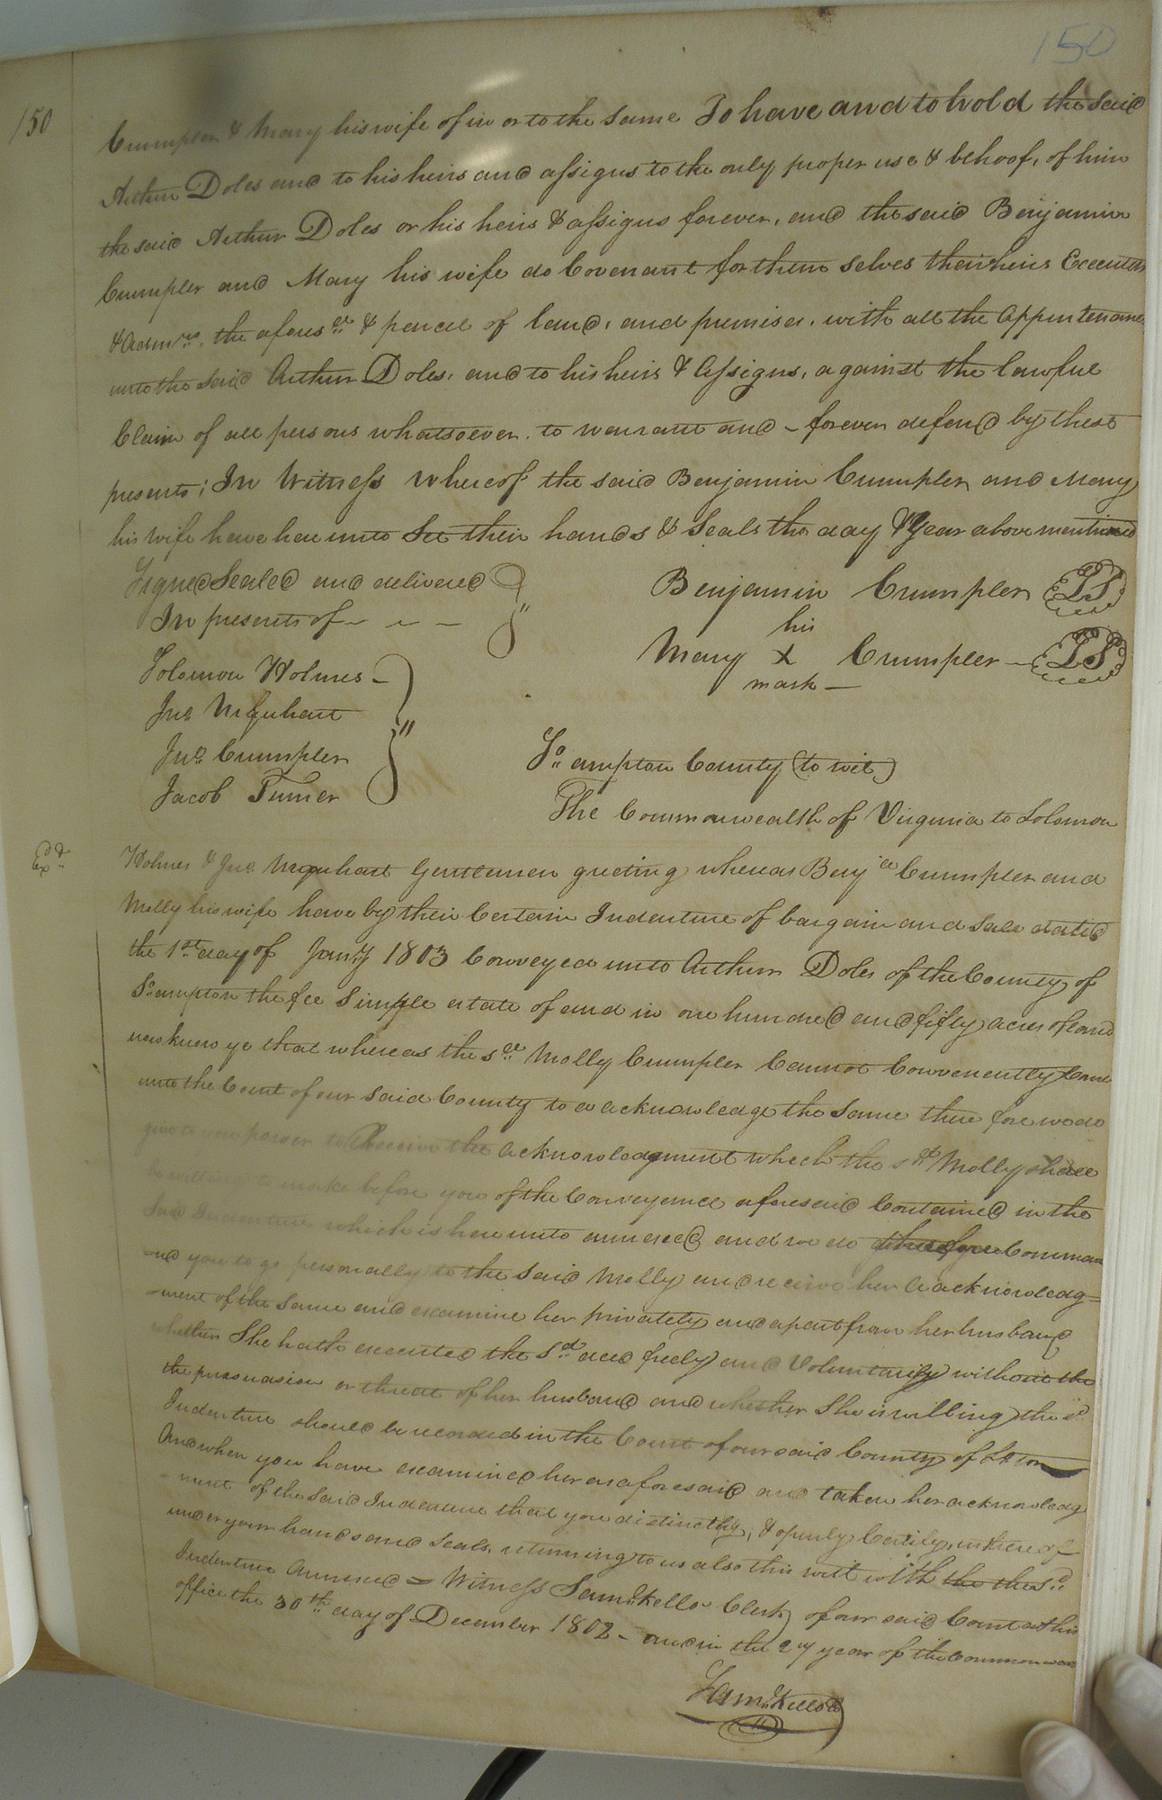 150
150
Crumpler & Mary his wife of in or to the same To have and to hold the said
Arthur Doles and to his heirs and assigns to the only proper use & behoof, of him
the said Arthur Doles or his heirs & assigns forever, and the said Benjamin
Crumpler and Mary his wife do Covenant for them selves their heirs Executors
& Admrs. the aforesd & parcel of land, and premises, with all the Appurtenances
unto the said Arthur Doles, and to his heirs & Assigns, against the lawful
Claim of all persons whatsoever, to warrant and - forever defend by these
presents; In Witness whereof the said Benjamin Crumpler and Mary
his wife have here unto Set their hands & Seals the day & Year above mentioned
Signed Sealed and delivered
In presents of
Benjamin Crumpler LS
his
Mary X Crumpler LS
mark
Solomon Holmes
Jno Urquhart
Jno Crumpler
Jacob Turner
So ampton County (to wit)
The Commonwealth of Virginia to Solomon
Exd
Holmes & Jno. Urquhart Gentlemen greeting whereas Benja Crumpler and
Molly his wife have by their Certain Indenture of bargain and Sale dated
the 1st day of Jany 1803 Conveyed unto Arthur Doles of the County of
So ampton the fee Simple estate of and in one hundred and fifty acres of land
now know ye that whereas the sd Molly Crumpler Cannot Convenently Come
unto the Court of our Said County to a acknowledge the Same there fore we do
give to you power to Receive the acknowledgment which the sd Molly shall
be willing to make before you of the Conveyance aforesaid Contained in the
Said Indenture which is here unto annexed and we do therefore Comman
and you to go personally to the said Molly and receive her acknowledg=
=ment of the Same and examine her privately and apart from her husband
whether She hath executed the Sd deed freely and Voluntarily without the
the persuasion or threat of her husband and whether She is willing the sd
Indenture should be recorded in the Court of our said County of
And when you have examined her as aforesaid and taken her acknowledg
=ment of the Said Indenture that you distinctly, & openly Certify, us there of
under your hands and Seals, returning to us also this writ with the the sd
Indenture Annexed = Witness Saml. Kello Clerk of our said Court at his
office the 30th day of December 1802 - and in the 27 year of the Commonwealth
Saml. Kello